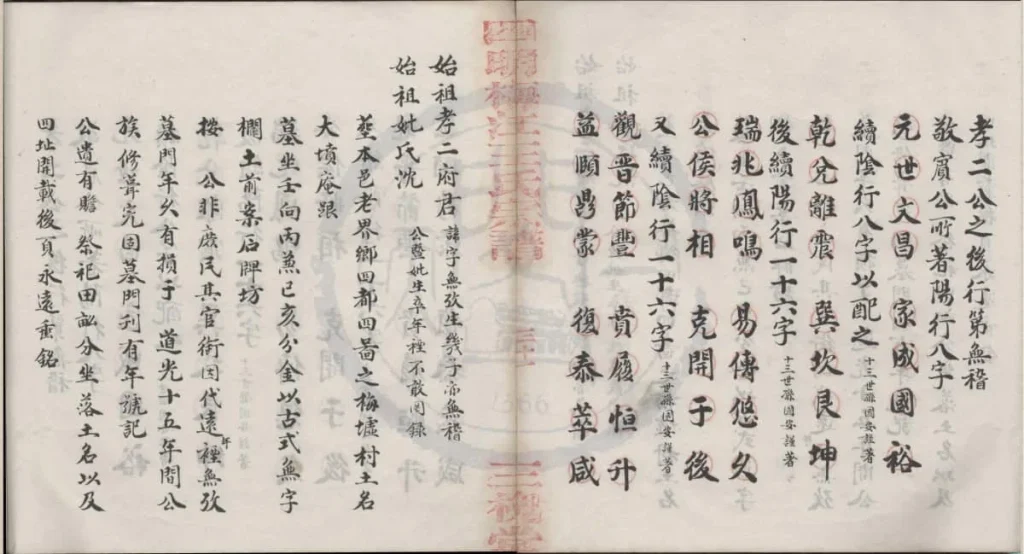 孝二公之後行第無稽
敬賓公所著陽行八字
元世文昌 家成國裕
續陰行八字以配之十三世孫国安謹著
乾兌離震 巽坎艮坤
後續陽行一十六字十三世孫国安謹著
瑞兆鳳鳴 易傳悠久
公侯將相 克開于後
又續陰行一十六字十三世孫国安謹著
觀晋節豐 賁履恒升
益頤鼎蒙 復泰萃咸
始祖孝二府君 諱字無攷生幾子亦無稽
始祖妣氏沈 公暨妣生卒年裡不敢罔錄
塟本邑老界鄉四都四啚之梅墟村土名
大墳庵跟
墓坐壬向丙兼已亥分金以古式無字
欄土前案石牌坊
按 公非庶民其官銜因代遠年裡無攷
墓門年久有損于 道光十五年間公
族修葺完固墓門刊有年號記
公遺有贍 祭祀田畆分坐落土名以及
四址開載後頁永遠重銘
三槐堂